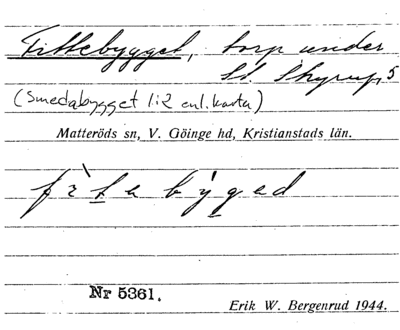 Fittebygget, torp under
St. Skyrup, 5
(Smedabygget 1:2 enl. karta)
Matteröds sn, V. Göinge hd, Kristianstads län.
Nr 5361.
Erik W. Bergenrud 1944.